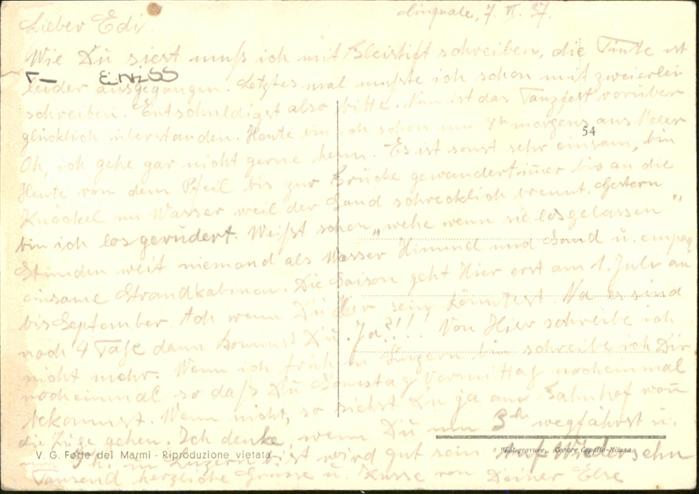 Cinquale, 7. VI. 57.
Lieber Edi.
Wie Du siest muß ich mit Bleistift schreiben, die Tinte ist
leider ausgegangen. Letztes mal mußte ich schon mit zweierlei
schreiben. Entschuldigst also bitte. Nun ist das Tanzfest vorüber
glücklich überstanden. Heute bin ich schon um morgens aus Meer
54
Oh, ich gehe gar nicht gerne heim. Es ist sonst sehr einsam, bin
Heute von dem Pfeil bis zur Brücke gewandert immer bis an die
Knöchel im Wasser weil der Sand schrecklich brennt. Gestern
bin ich losgerudert. Weißt schon "wehe wenn sie losgelassen"
Stunden weit niemand als Wasser Himmel und Sand u.
einsame Strandkabinen. Die Saison geht Hier erst am 1. Juli an
bis September. Ach wenn Du Hier sein könntest Na es sind
noch 4 Tage dann kommst Du. Ja?!!! Von Hier schreibe ich
nicht mehr. Wenn ich früh in Luzern bin schreibe ich Dir
nocheinmal so daß Du Samstag Vormittag nocheinmal
bekommst. Wenn nicht, so siehst Du ja am Bahnhof wann
die Züge gehen. Ich denke, wenn Du um 3h wegfährst u.
in Luzern bist wird gut sein. Auf Wiedersehn
V. G. Forte dei Marmi - Riproduzione vietata
Tausend herzliche Grüsse u. Küsse von Deiner Else